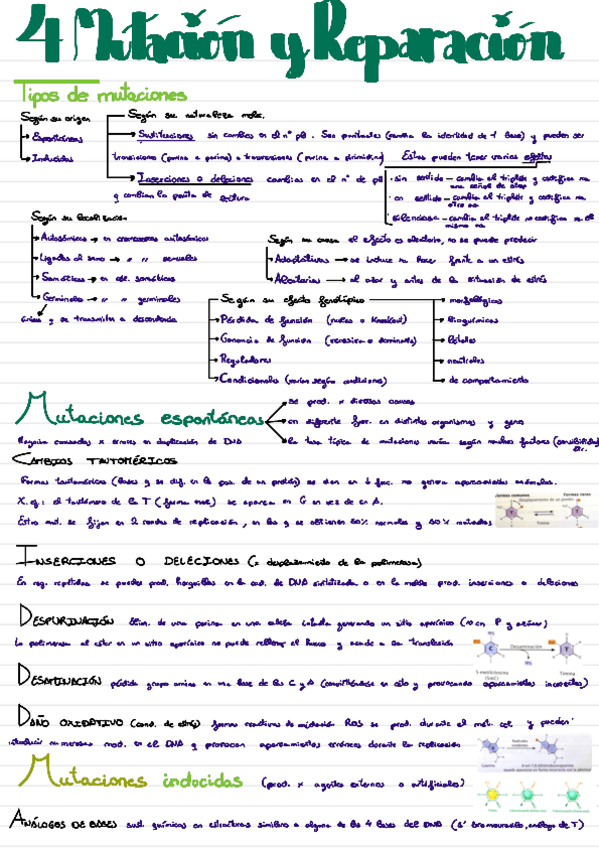 4 Mutación y Reparación
Tipos de mutaciones
Según su origen
Espontáneas
Inducidas
Según su naturaleza molec.
Sustituciones sin cambios en el nº pb. Son puntuales (cambia la identidad de 1 base) y pueden ser
transiciones (purina a purina) o transversiones (purina a pirimidina) Estas pueden tener varios efectos
Inserciones o deleciones cambios en el nº de pb
y cambian la pauta de lectura
sin sentido - cambia el triplete y codifica
una señal de stop
en sentido - cambia el triplete y codifica
otro aa
silenciosa - cambia el triplete no codifica
mismo aa
Según su localización
Autosómicas → en cromosomas autosómicos
Ligadas al sexo → " " sexuales
Somáticas → en cél. somáticas
Germinales → " " germinales
única q se transmite a descendencia
Según su causa el efecto es aleatorio, no se puede predecir
Adaptativas → se induce frente a un estrés
Aleatorias → al azar y antes de la situación de estrés
Según su efecto fenotípico
Pérdida de función (nulas o knockout)
Ganancia de función (recesiva o dominante)
Reguladoras
Condicionales (varían según condiciones)
morfológicas
bioquímicas
letales
neutrales
de comportamiento
Mutaciones espontáneas
se prod. x diversas causas
con diferente frec. en distintos organismos y genes
la tasa típica de mutaciones varía según muchos factores
Mayoría causadas x errores en duplicación de DNA
CAMBIOS TAUTOMÉRICOS
Formas tautoméricas (bases q se dif. en la pos. de un protón) se dan en ↓ frec. no genera apareamientos anómalos.
X ej: el tautómero de la T (forma enol) se aparea con G en vez de con A.
Estas mut. se fijan en 2 rondas de replicación, en las q se obtienen 50% normales y 50% mutados
Timina
INSERCIONES O DELECIONES (x desplazamiento de la polimerasa)
En reg. repetidas se pueden prod. horquillas en la cad. de DNA sintetizada o en la molde prod. inserciones o deleciones
DESPURINACIÓN Elim. de una purina en una cadena generando un sitio apurínico (no en P y azúcar)
La polimerasa al estar en un sitio apurínico no puede rellenar el hueco
Desaminación
5-metilcitosina
(5mC)
Timina
DESAMINACIÓN pérdida grupo amino en una base de las C y A (convirtiéndose en y provocando apareamientos incorrectos)
DAÑO OXIDATIVO (cond. de estrés) formas reactivas de oxidación ROS se prod. durante el met. cel y pueden
introducir numerosas mod. en el DNA y provocan apareamientos erróneos durante la replicación
Mutaciones inducidas (prod. x agentes externos o artificiales)
ANÁLOGOS DE BASES sust. químicas en estructuras similares a alguna de las 4 bases del DNA (5' bromouracilo, análogo de T)